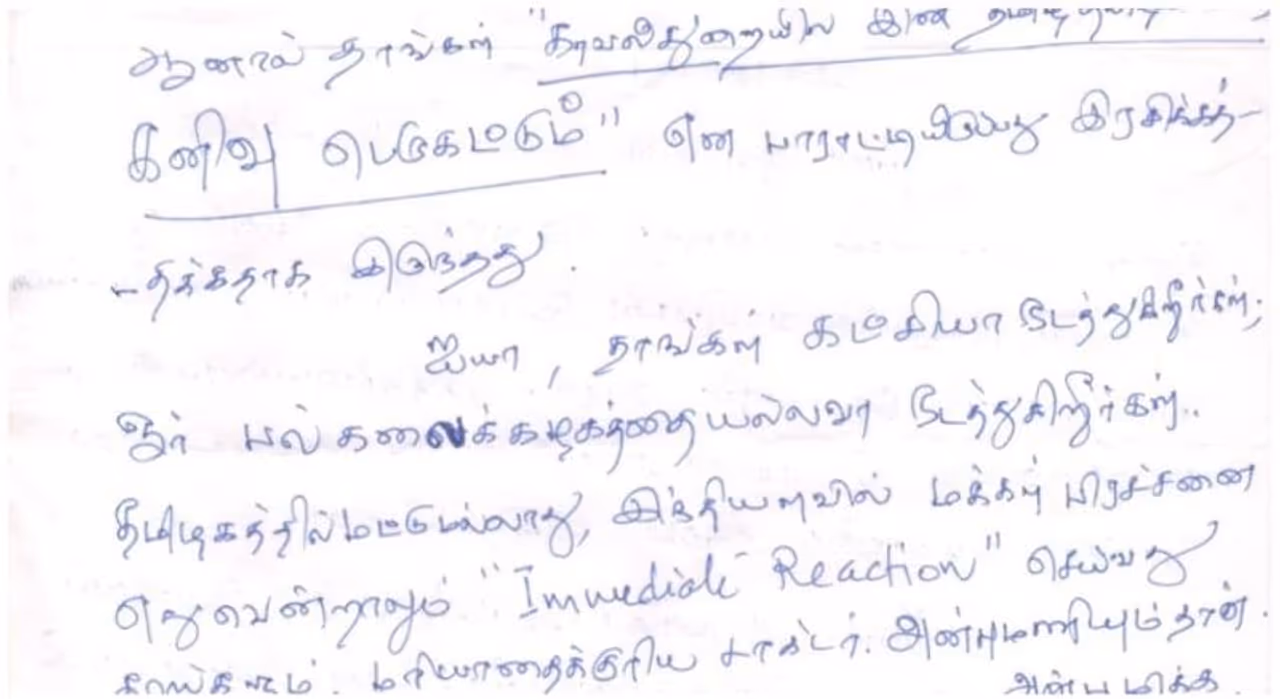 ஆனால் தாங்கள் "காவல்துறையில் இனி
கனிவு பெருகட்டும்" என பாராட்டியிருப்பது இரசிக்கத்-
-திக்கதாக இருந்தது.
ஐயா, தாங்கள் கட்சியா நடத்துகிறீர்கள்;
ஓர் பல்கலைக்கழகத்தையல்லவா நடத்துகிறீர்கள்..
தமிழகத்தில் மட்டுமல்லாது, இந்தியளவில் மக்கள் பிரச்சனை
எதுவென்றாலும் "Immediate Reaction" செய்வது
தாங்களும், மரியாதைக்குரிய டாக்டர். அன்புமணியும்தான்.
அன்புமிக்க